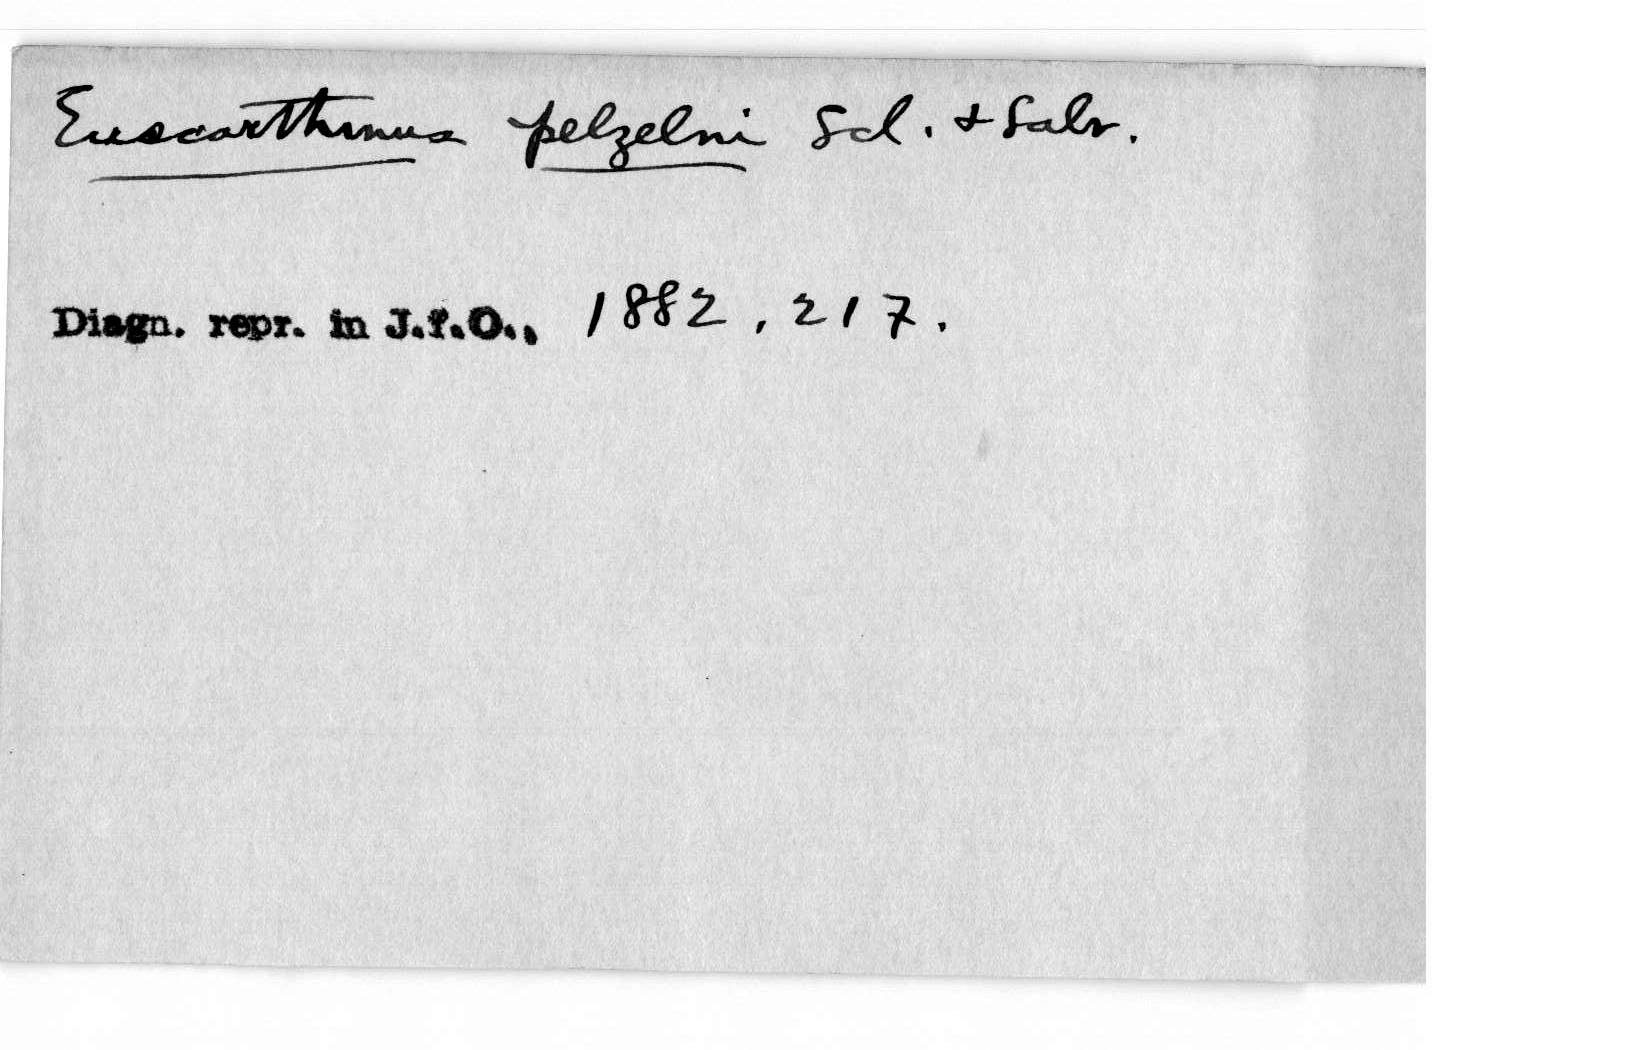 Euscarthmus pelzelni Scl. & Salv.
Diagn. repr. in J.f.O., 1882, 217.